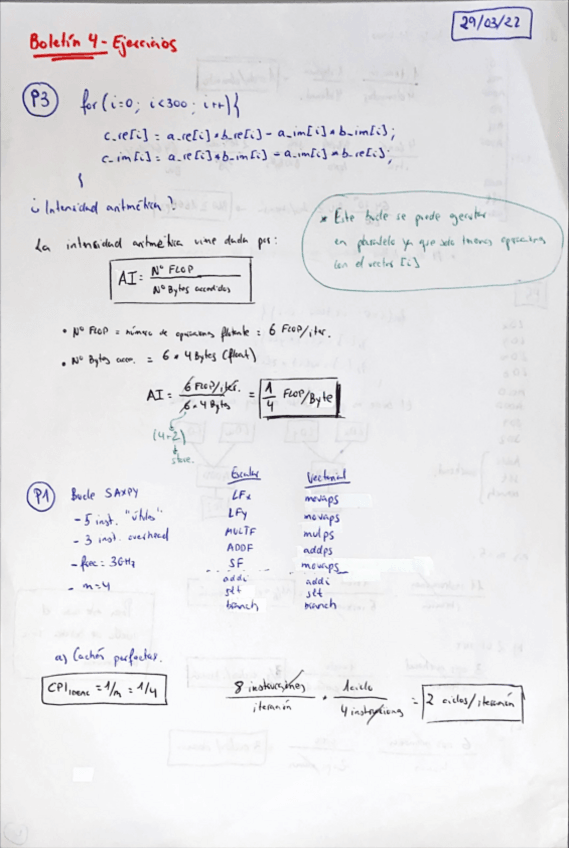 29/03/22
Boletín 4 - Ejercicios
P3 for (i=0; i<300; i++){
c_re[i] = a_re[i] * b_re[i] - a_im[i] * b_im[i];
c_im[i] = a_re[i] * b_im[i] - a_im[i] * b_re[i];
}
¿Intensidad aritmética?
* Este bucle se puede ejecutar
en paralelo ya que solo tenemos operaciones
con el vector [i]
La intensidad aritmética viene dada por:
AI = Nº FLOP / Nº Bytes accedidos
• Nº FLOP = número de operaciones flotante = 6 FLOP/iter.
• Nº Bytes acce. = 6 * 4 Bytes (float)
AI = 6 FLOP/iter. / 6 * 4 Bytes = 1/4 FLOP/Byte
(4+2)
store.
P1 Bucle SAXPY
- 5 inst. "útiles"
- 3 inst. overhead
- frec = 3GHz
- m=4
Escalar
LFx
LFy
MULTF
ADDF
SF
addi
slt
branch
Vectorial
movaps
movaps
mulps
addps
movaps
addi
slt
branch
a) Cachés perfectas.
CPI = 1/m = 1/4
8 instrucciones / iteración * 1 ciclo / 4 instrucciones = 2 ciclos/iteración